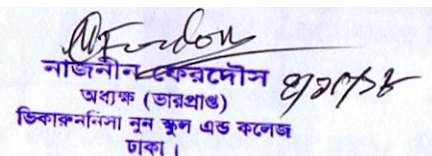 নাজনীন ফেরদৌস
অধ্যক্ষ (ভারপ্রাপ্ত)
ভিকারুননিসা নূন স্কুল এন্ড কলেজ
ঢাকা।